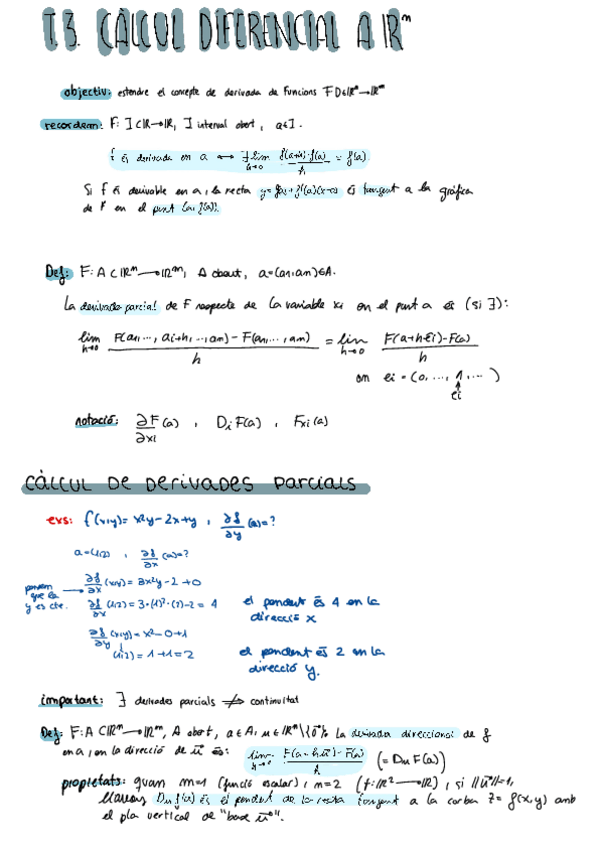 T.3. CÀLCUL DIFERENCIAL A ℝⁿ
objectiu: estendre el concepte de derivada de funcions F: D⊂ℝⁿ→ℝᵐ
recordem: F: I⊂ℝ→ℝ, I interval obert, a∈I.
f és derivable en a ↔ ∃ lim h→0 (f(a+h)-f(a))/h = f'(a)
Si f és derivable en a, la recta y=f(a)+f'(a)(x-a) és tangent a la gràfica
de F en el punt (a, f(a)).
Def: F: A⊂ℝⁿ→ℝᵐ, A obert, a=(a₁,an)∈A.
La derivada parcial de F respecte de la variable xi en el punt a és (si ∃):
lim h→0 (F(a₁,..., ai+h,...,an) - F(a₁,...,an))/h = lim h→0 (F(a+hēi)-F(a))/h
on ei = (0,...,1,...)
ei
notació: ∂F/∂xi (a), Di F(a), Fxi (a)
CÀLCUL DE DERIVADES PARCIALS
exs: f(x,y)= x²y-2x+y, ∂f/∂y (a)=?
a=(1,2), ∂f/∂x (a)=?
posem que la y es cte. → ∂f/∂x (x,y) = 3x²y-2+0
∂f/∂x (1,2) = 3·(1)²·(2)-2 = 4 el pendent és 4 en la direcció x
∂f/∂y (x,y) = x²-0+1
(1,2) = 1+1=2 el pendent és 2 en la direcció y.
important: ∃ derivades parcials ⇏ continuïtat
Def: F: A⊂ℝⁿ→ℝᵐ, A obert, a∈A, u∈ℝⁿ\{0} la derivada direccional de f
en a, en la direcció de u és: lim h→0 (F(a+hu)-F(a))/h (= Du F(a))
propietats: quan m=1 (funció escalar), n=2 (f: ℝ²→ℝ), si ||u||=1,
llavors Du f(a) és el pendent de la recta tangent a la corba z=f(x,y) amb
el pla vertical de "base u".